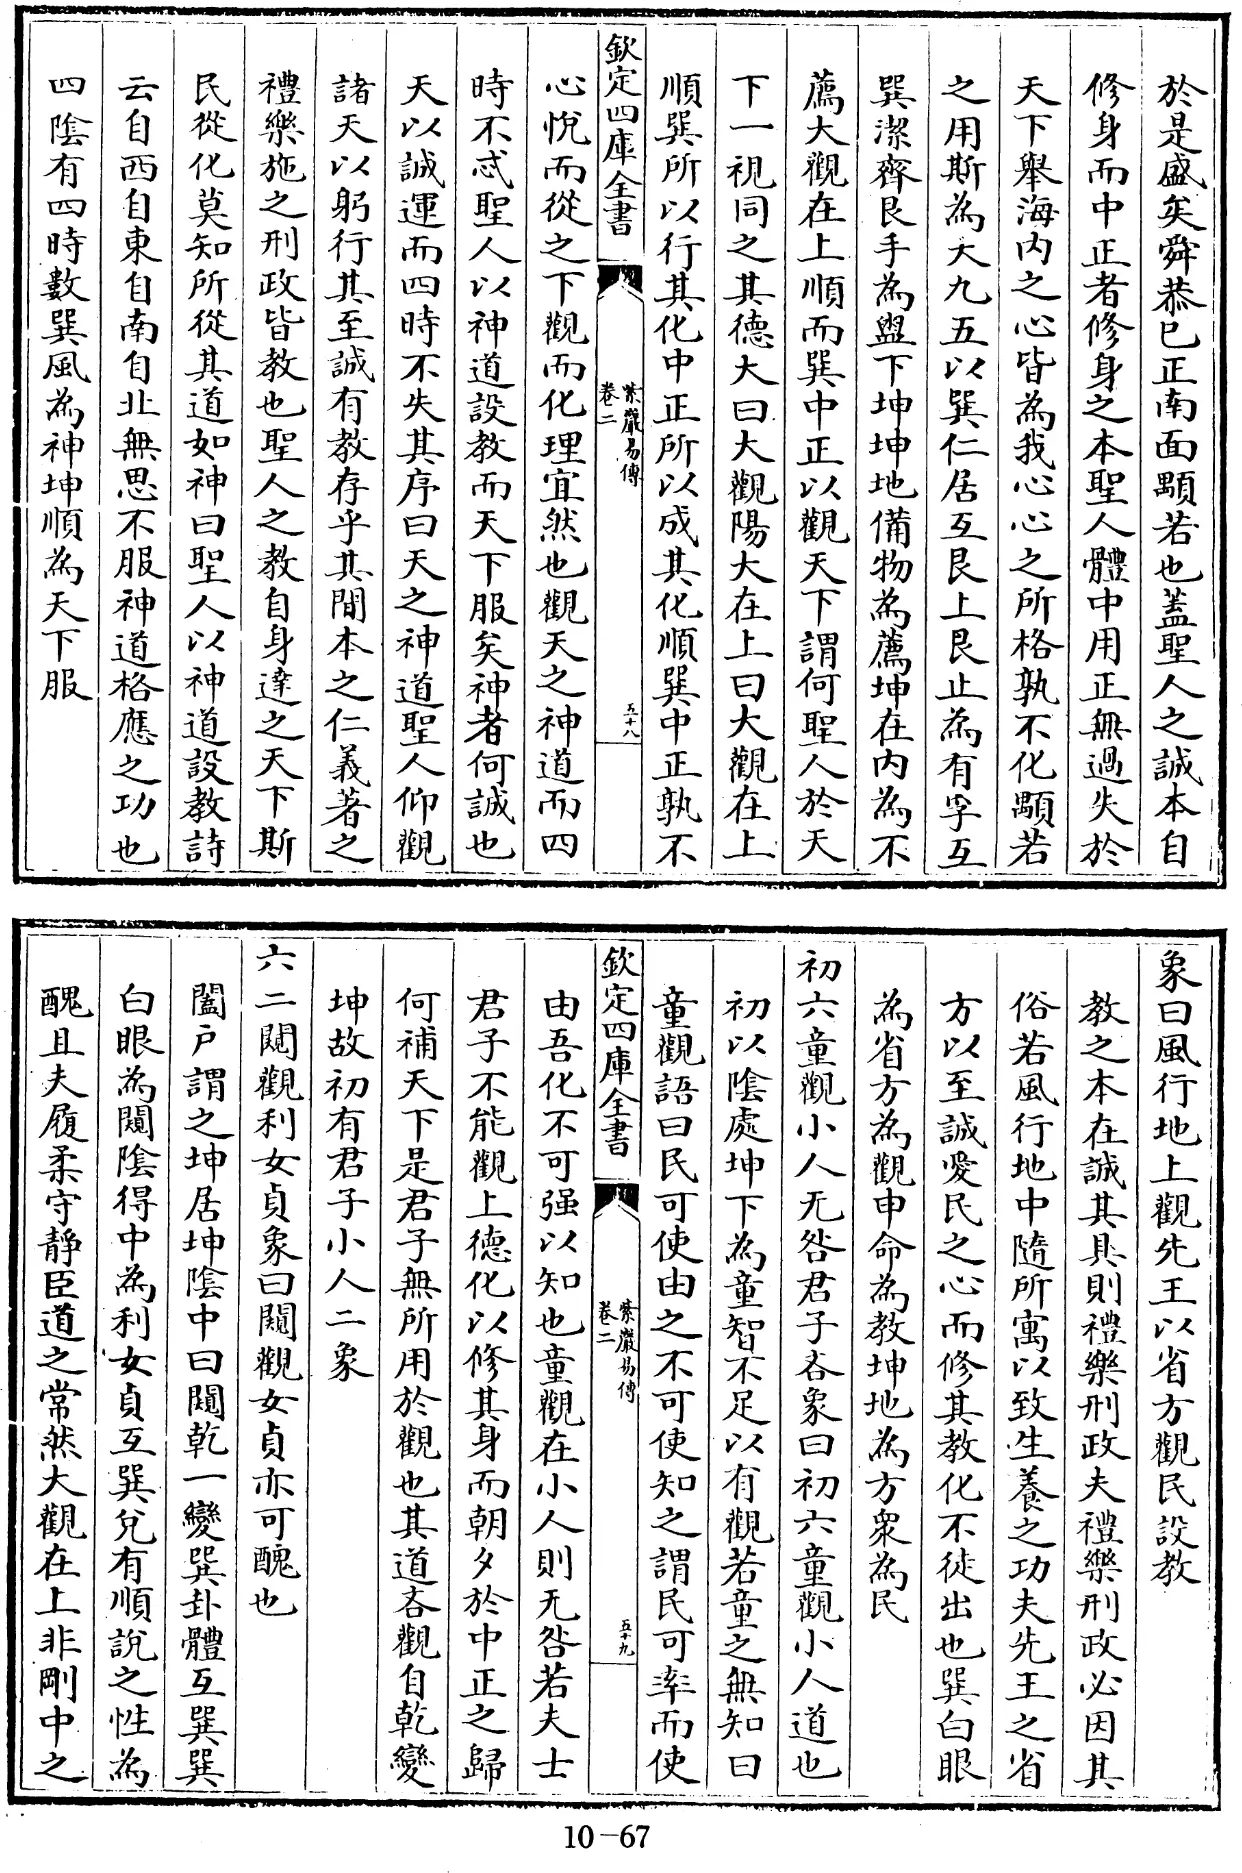 於是盛矣舜恭已正南面顒若也蓋聖人之誠本自
修身而中正者修身之本聖人體中用正無過失於
天下舉海内之心皆為我心心之所格孰不化顒若
之用斯為大九五以巽仁居互艮上艮止為有孚互
巽潔齊艮手為盥下坤坤地備物為薦坤在内為不
薦大觀在上順而巽中正以觀天下謂何聖人於天
下一視同之其德大曰大觀陽大在上曰大觀在上
順巽所以行其化中正所以成其化順巽中正孰不
欽定四庫全書
紫巖易傳
卷二
五十八
心悅而從之下觀而化理宜然也觀天之神道而四
時不忒聖人以神道設教而天下服矣神者何誠也
天以誠運而四時不失其序曰天之神道聖人仰觀
諸天以躬行其至誠有教存乎其間本之仁義著之
禮樂施之刑政皆教也聖人之教自身達之天下斯
民從化莫知所從其道如神曰聖人以神道設教詩
云自西自東自南自北無思不服神道格應之功也
四陰有四時數巽風為神坤順為天下服
象曰風行地上觀先王以省方觀民設教
教之本在誠其具則禮樂刑政夫禮樂刑政必因其
俗若風行地中隨所寓以致生養之功夫先王之省
方以至誠愛民之心而修其教化不徒出也巽白眼
為省方為觀申命為教坤地為方衆為民
初六童觀小人无咎君子吝象曰初六童觀小人道也
初以陰處坤下為童智不足以有觀若童之無知曰
童觀語曰民可使由之不可使知之謂民可率而使
欽定四庫全書
紫巖易傳
卷二
五十九
由吾化不可强以知也童觀在小人則无咎若夫士
君子不能觀上德化以修其身而朝夕於中正之歸
何補天下是君子無所用於觀也其道吝觀自乾變
坤故初有君子小人二象
六二闚觀利女貞象曰闚觀女貞亦可醜也
闔戶謂之坤居坤陰中曰闚乾一變巽卦體互巽巽
白眼為闚陰得中為利女貞互巽兌有順說之性為
醜且夫履柔守靜臣道之常然大觀在上非剛中之
10-67